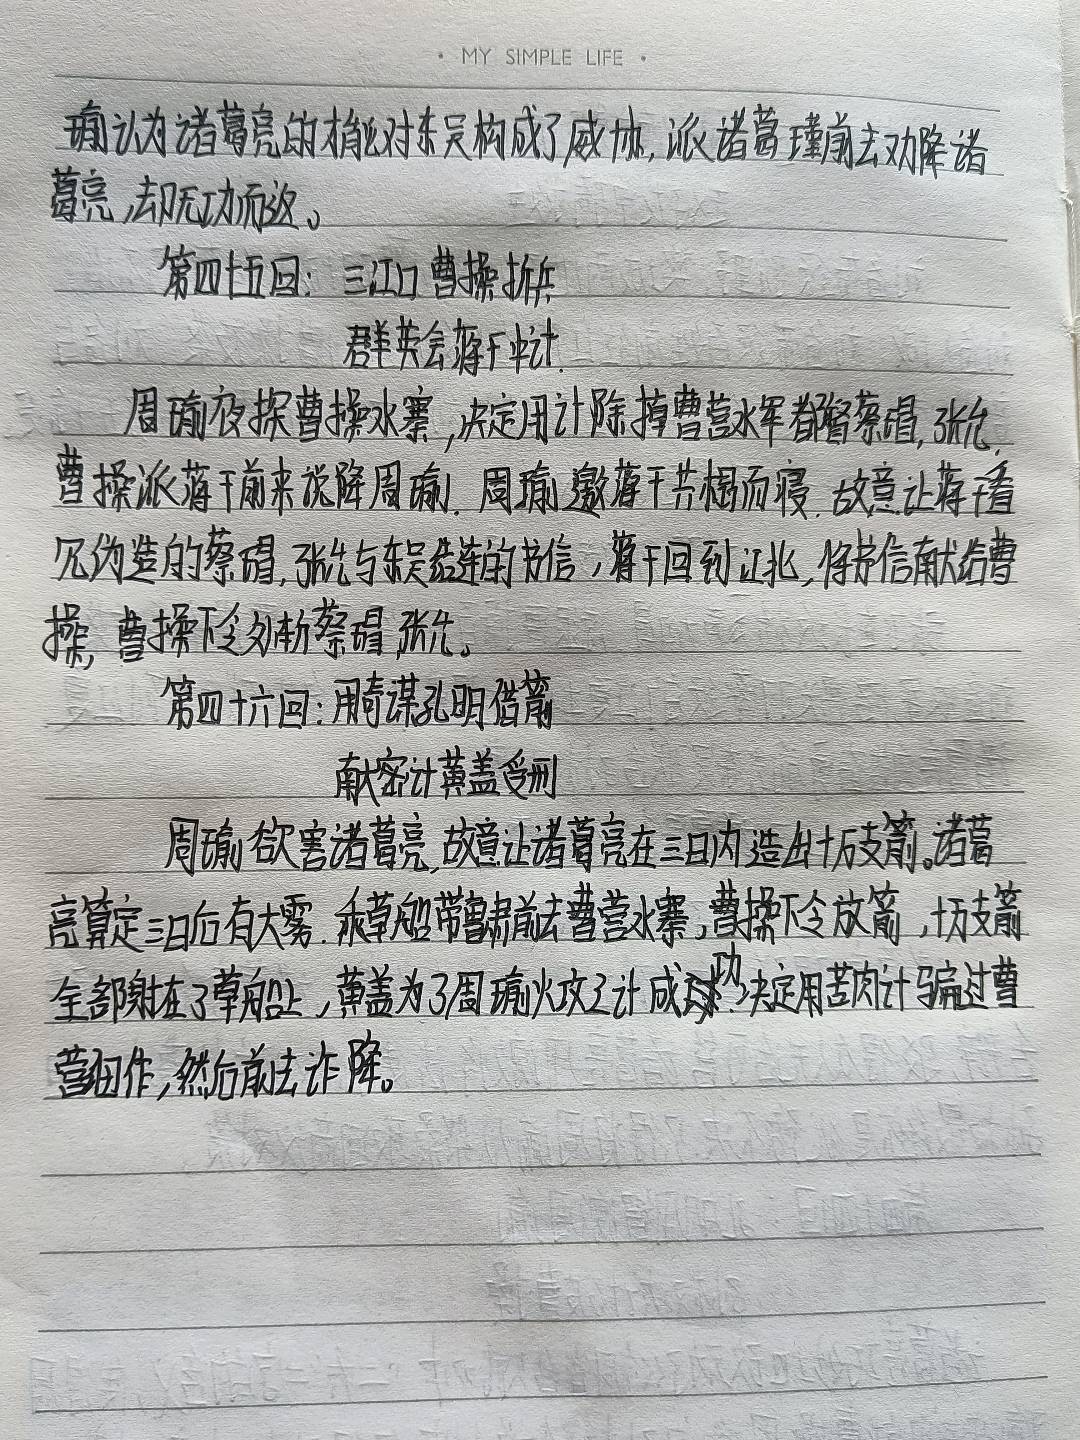 · MY SIMPLE LIFE ·
瑜认为诸葛亮的才能对东吴构成了威协,派诸葛瑾前去劝降诸
葛亮,却无功而返。
第四十五回:三江口曹操折兵
群英会蒋干中计.
周瑜夜探曹操水寨,决定用计除掉曹营水军都督蔡瑁,张允,
曹操派蒋干前来说降周瑜.周瑜邀蒋干共榻而寝.故意让蒋干看
见伪造的蔡瑁,张允与东吴结连的书信,蒋干回到江北,将书信献给曹
操,曹操下令处斩蔡瑁,张允。
第四十六回:用奇谋孔明借箭
献密计黄盖受刑
周瑜欲害诸葛亮,故意让诸葛亮在三日内造出十万支箭。诸葛
亮算定三日后有大雾.乘草船带鲁肃前去曹营水寨,曹操下令放箭,十万支箭
全部射在了草船上,黄盖为了周瑜火攻之计成功.决定用苦肉计骗过曹
营细作,然后前去诈降。